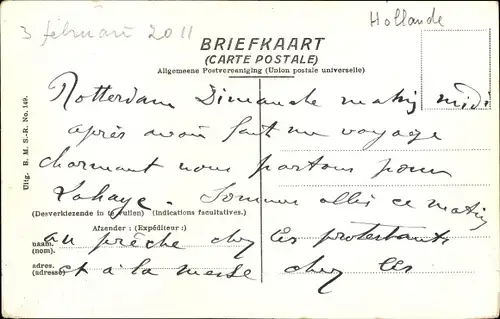 3 februari 2011
Hollande
BRIEFKAART
(CARTE POSTALE)
Algemeene Postvereeniging (Union postale universelle)
Rotterdam Dimanche matin midi
après avoir fait un voyage
charmant nous partons pour
Lahaye. Sommes allés ce matin
(Desverkiezende in te vullen) (Indications facultatives.)
Afzender : (Expéditeur :)
au prêche chez les protestants
naam.
(nom).
et à la messe chez les
adres.
(adresse)
Uitg. B. M. S.-R. No. 149.